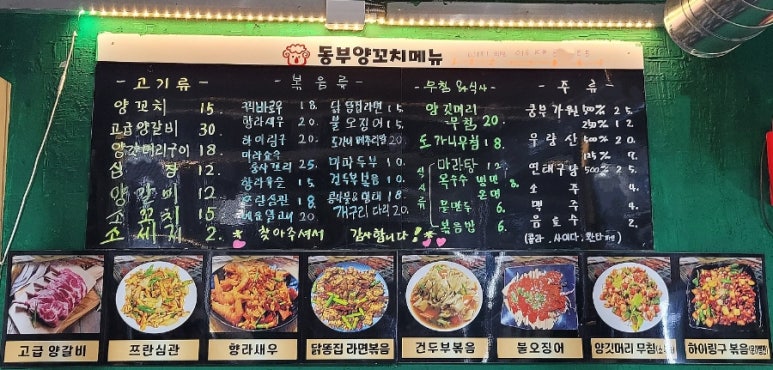 동부양꼬치메뉴
- 고기류 -
양꼬치 15.
고급양갈비 30.
양깃머리구이 18.
심장 12.
양갈비 12.
소꼬치 15
소세지 2.
- 볶음류 -
꿔바로우 18.
향라새우 20.
하이링구 20.
마라소육
25.
향라육슬
쯔란심관 18.
20.
닭똥집라면 15.
불오징어 15.
도가니
마파두부 10.
건두부볶음 10.
18.
개구리다리 20.
- 무침 와 식사 -
양깃머리
무침 20.
도가니무침 18.
식사류
마라탕 12.
옥수수 냉면
온면 8.
물만두 6.
볶음밥 6.
- 주류 -
500% 25.
250% 12.
우량산 500% 20.
125% 7.
연태구냥 500% 25.
소주 4.
맥주 4.
음료수 2.
(콜라. 사이다. 환타
찾아주셔서 감사합니다!
고급 양갈비
쯔란심관
향라새우
닭똥집 라면볶음
건두부볶음
불오징어
양깃머리 무침
하이링구 볶음